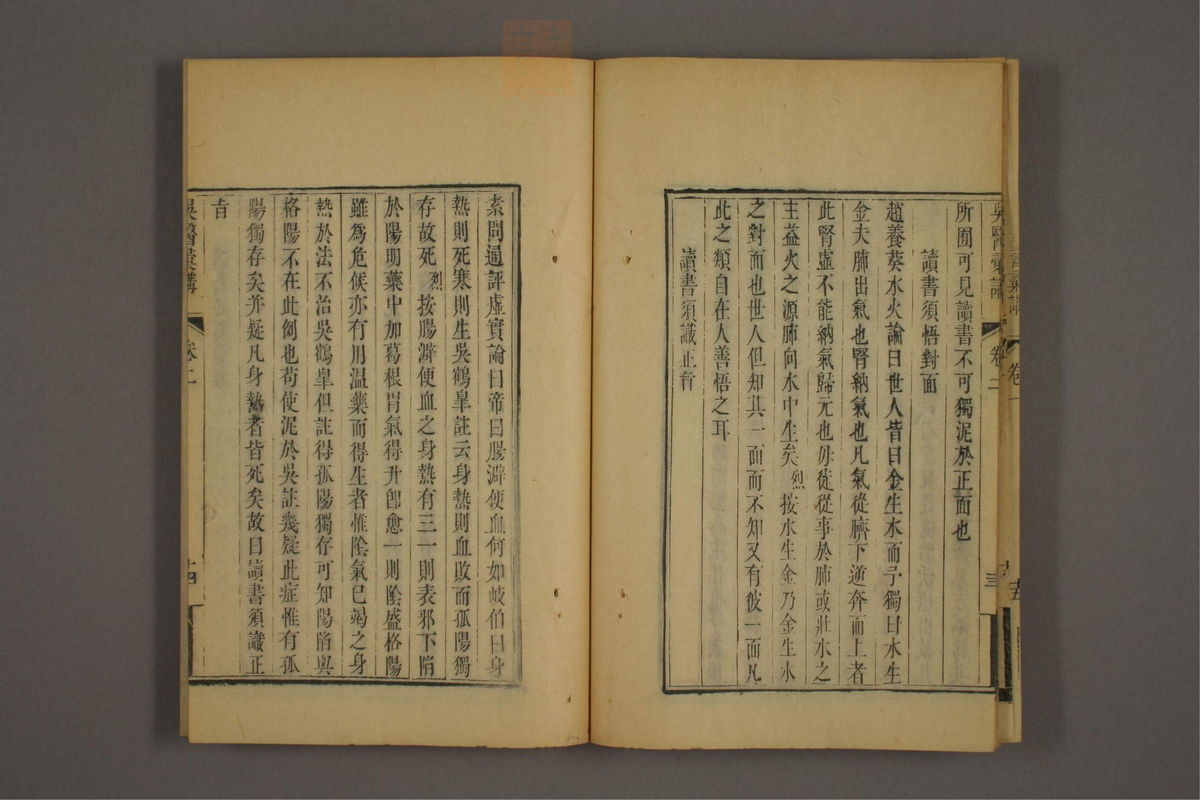 所囿可見讀書不可獨泥於正面也
讀書須悟對面
趙養葵水火論曰世人皆曰金生水而予獨曰水生
金夫肺出氣也腎納氣也凡氣從臍下逆奔而上者
此腎虛不能納氣歸元也毋徒從事於肺或壯水之
主益火之源肺向水中生矣烈按水生金乃金生水
之對面也世人但知其一面而不知又有彼一面凡
此之類自在人善悟之耳
讀書須識正旨
素問通評虛實論曰帝曰腸澼便血何如岐伯曰身
熱則死寒則生吳鶴皋註云身熱則血敗而孤陽獨
存故死烈按腸澼便血之身熱有三一則表邪下陷
於陽明藥中加葛根胃氣得升卽愈一則陰盛格陽
雖爲危候亦有用温藥而得生者惟陰氣已竭之身
熱於法不治吳鶴皋但註得孤陽獨存可知陽陷與
格陽不在此例也苟使泥於吳註幾疑此症惟有孤
陽獨存矣并疑凡身熱者皆死矣故曰讀書須識正
旨
吳醫彙講
卷二
十四
吳醫彙講
卷二